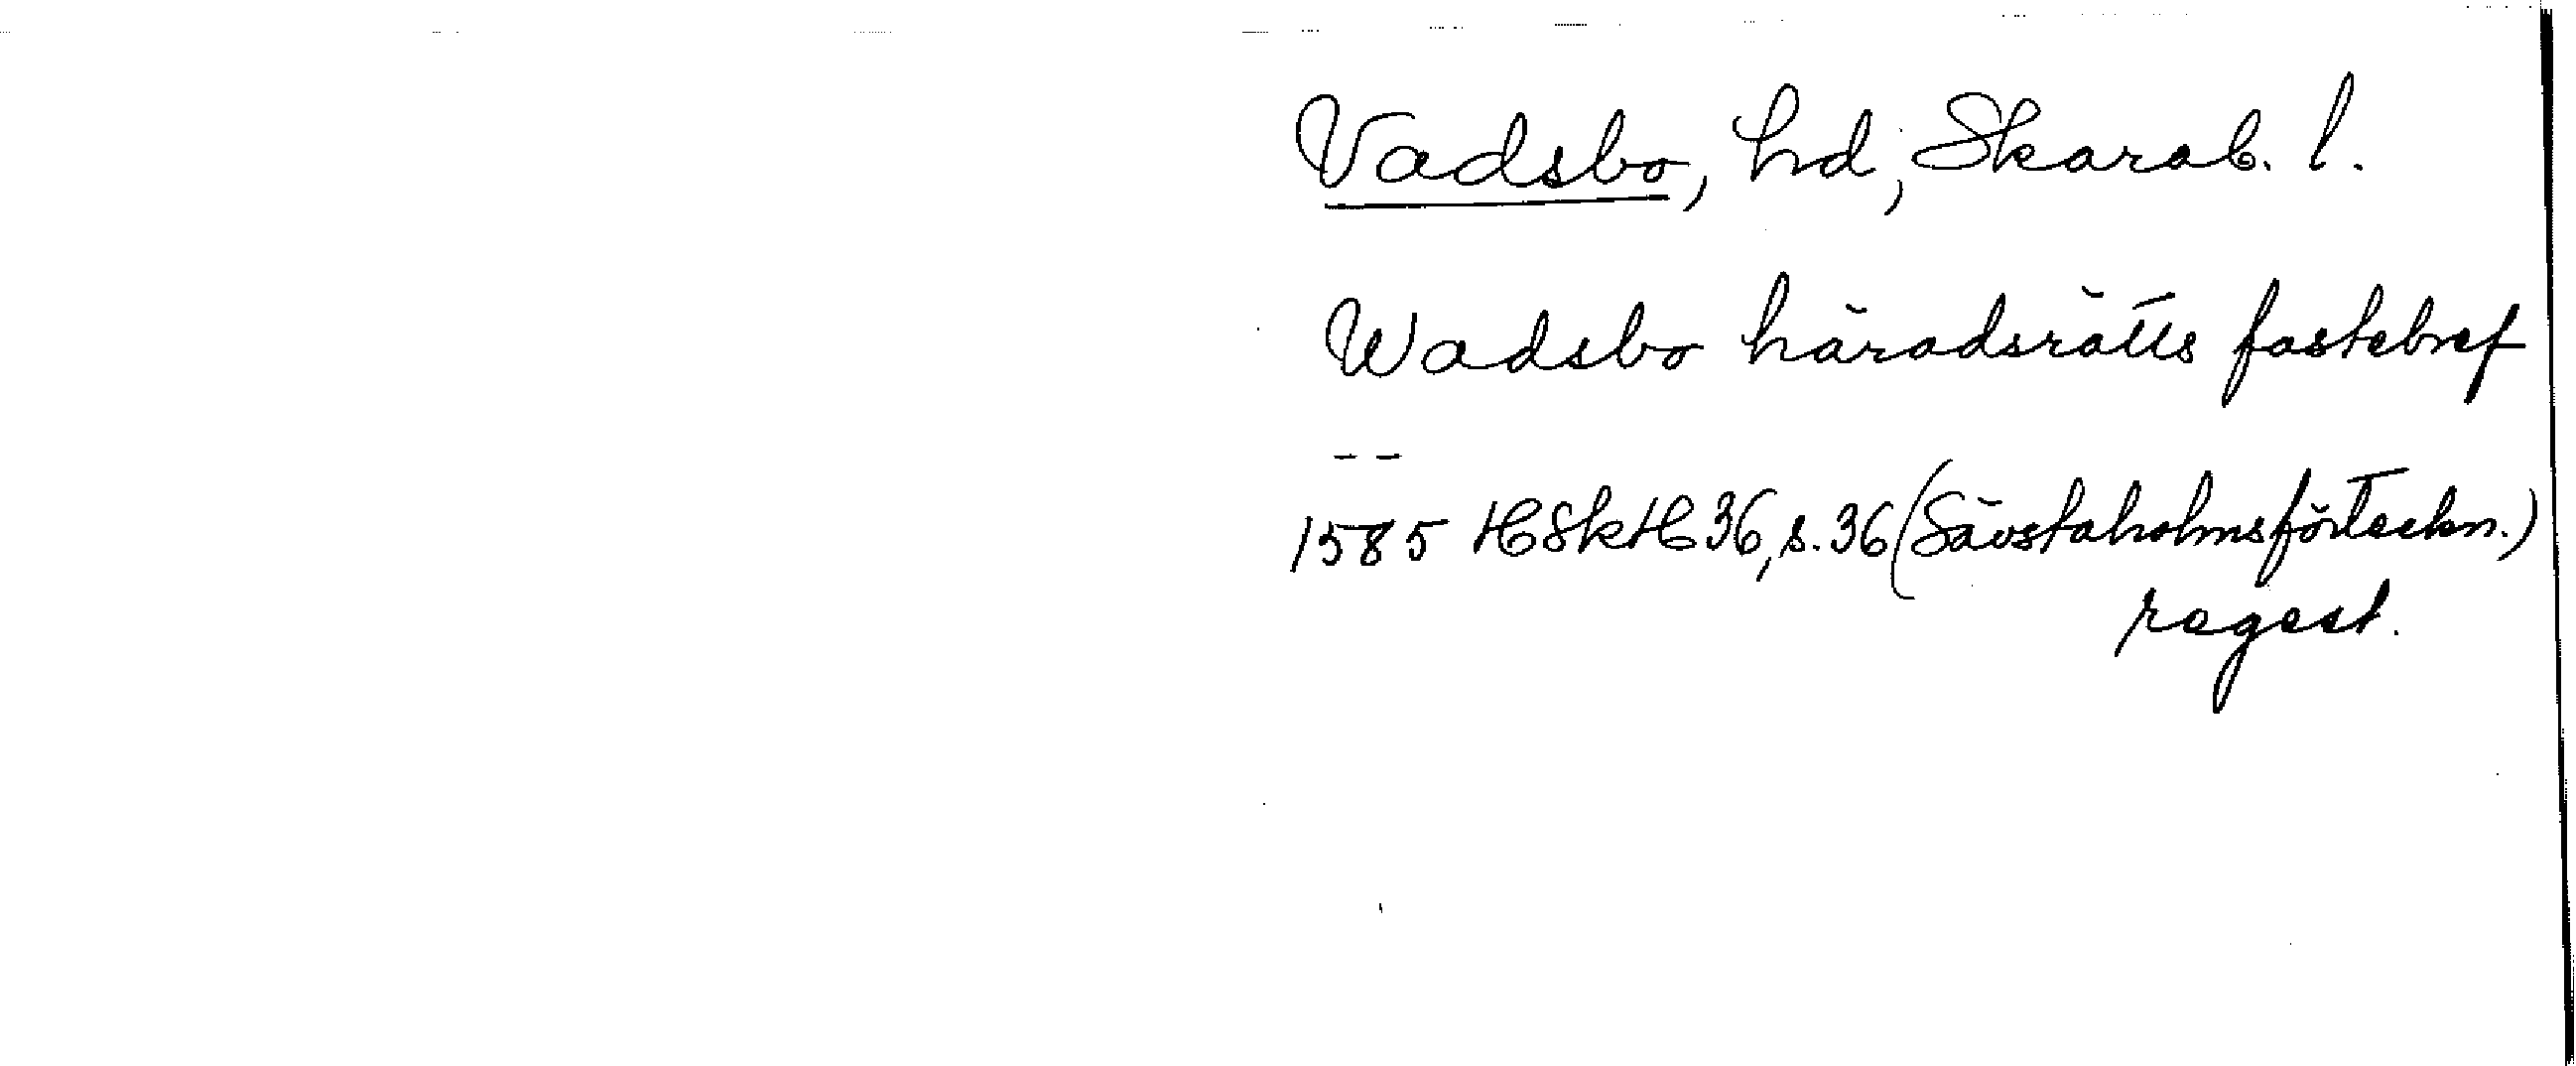 Vadsbo, hd, Skarab. l.
Wadsbo häradsrätts fastebref
- -
1585 HSkH 36, s. 36 (Sävstaholmsförteckn.)
regest.